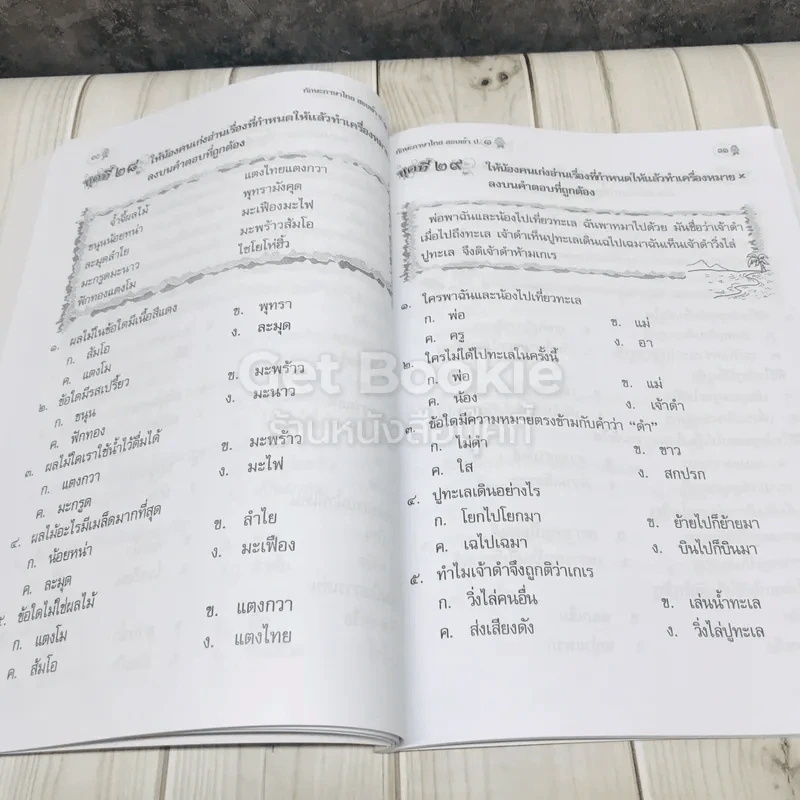 ทักษะภาษาไทย สอบเข้า ป.
ชุดที่ ๒๘ ให้น้องคนเก่งอ่านเรื่องที่กำหนดให้แล้วทำเครื่องหมาย
ลงบนคำตอบที่ถูกต้อง
จ้ำจี้ผลไม้ แตงไทยแตงกวา
ขนุนน้อยหน่า พุทรามังคุด
ละมุดลำไย มะเฟืองมะไฟ
มะกรูดมะนาว มะพร้าวส้มโอ
ฟักทองแตงโม ไชโยโห่ฮิ้ว
๑. ผลไม้ในข้อใดมีเนื้อสีแดง
ก. ส้มโอ ข. พุทรา
ค. แตงโม ง. ละมุด
๒. ข้อใดมีรสเปรี้ยว
ก. ขนุน ข. มะพร้าว
ค. ฟักทอง ง. มะนาว
๓. ผลไม้ใดเราใช้น้ำไว้ดื่มได้
ก. แตงกวา ข. มะพร้าว
ค. มะกรูด ง. มะไฟ
๔. ผลไม้อะไรมีเมล็ดมากที่สุด
ก. น้อยหน่า ข. ลำไย
ค. ละมุด ง. มะเฟือง
๕. ข้อใดไม่ใช่ผลไม้
ก. แตงโม ข. แตงกวา
ค. ส้มโอ ง. แตงไทย
ทักษะภาษาไทย สอบเข้า ป. ๑
ชุดที่ ๒๙ ให้น้องคนเก่งอ่านเรื่องที่กำหนดให้แล้วทำเครื่องหมาย ×
ลงบนคำตอบที่ถูกต้อง
พ่อพาฉันและน้องไปเที่ยวทะเล ฉันพาหมาไปด้วย มันชื่อว่าเจ้าดำ
เมื่อไปถึงทะเล เจ้าดำเห็นปูทะเลเดินเฉไปเฉมาฉันเห็นเจ้าดำวิ่งไล่
ปูทะเล จึงตีเจ้าดำห้ามเกเร
๑. ใครพาฉันและน้องไปเที่ยวทะเล
ก. พ่อ ข. แม่
ค. ครู ง. อา
๒. ใครไม่ได้ไปทะเลในครั้งนี้
ก. พ่อ ข. แม่
ค. น้อง ง. เจ้าดำ
๓. ข้อใดมีความหมายตรงข้ามกับคำว่า “ดำ”
ก. ไม่ดำ ข. ขาว
ค. ใส ง. สกปรก
๔. ปูทะเลเดินอย่างไร
ก. โยกไปโยกมา ข. ย้ายไปก็ย้ายมา
ค. เฉไปเฉมา ง. บินไปก็บินมา
๕. ทำไมเจ้าดำจึงถูกตีว่าเกเร
ก. วิ่งไล่คนอื่น ข. เล่นน้ำทะเล
ค. ส่งเสียงดัง ง. วิ่งไล่ปูทะเล
Get Bookie
ร้านหนังสือบุ๊คกี้